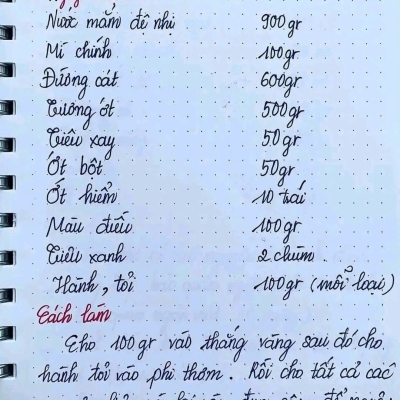 Nước mắm đệ nhị 900gr
Mì chính 100gr
Đường cát 600gr
Tương ớt 500gr
Tiêu xay 50gr
Ớt bột 50gr
Ớt hiểm 10 trái
Màu điều 100gr
Tiêu xanh 2 chùm.
Hành, tỏi 100gr (mỗi loại)
Cách làm
Cho 100gr vào thắng vàng sau đó cho
hành tỏi vào phi thơm. Rồi cho tất cả các